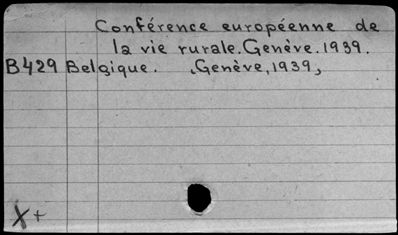 Conférence européenne de
la vie rurale. Genève. 1939.
B429 Belgique. , Genève, 1939,
X+